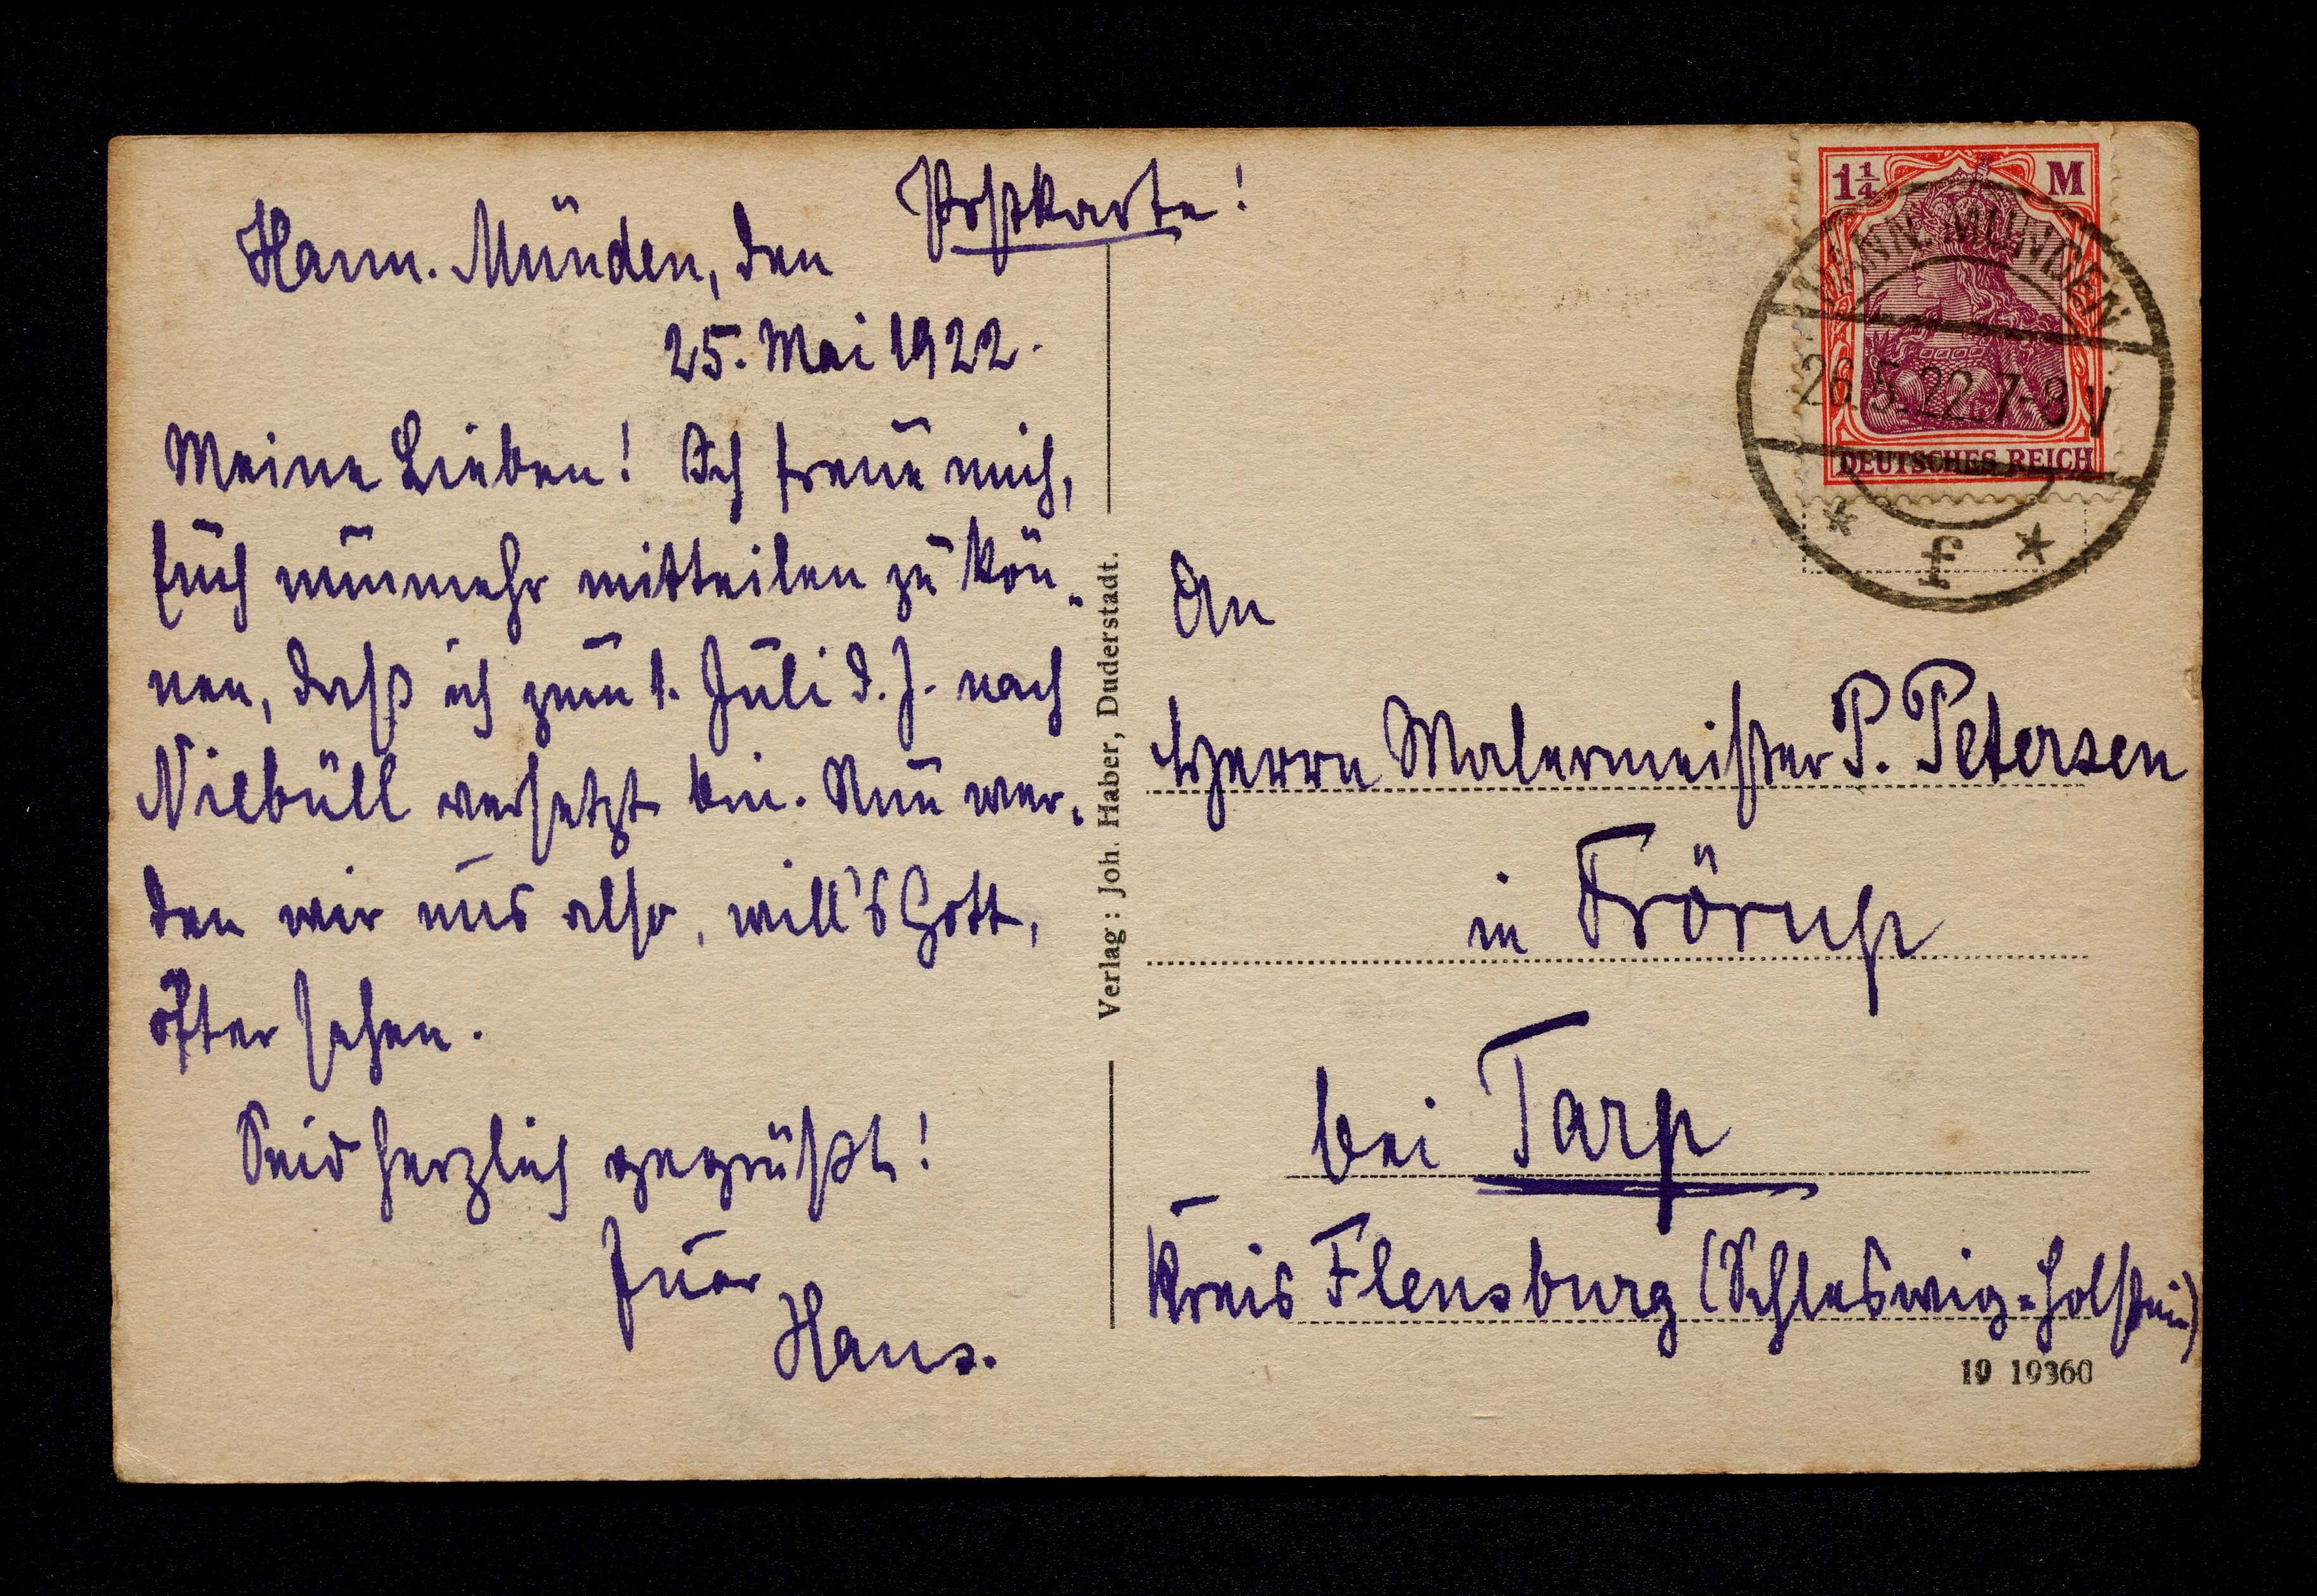 Postkarte!
Hann. Münden, den
25. Mai 1922.
Meine Lieben! Ich freue mich,
Euch nunmehr mitteilen zu kön-
nen, daß ich zum 1. Juli d. J. nach
Niebüll versetzt bin. Nun wer-
den wir uns also, will's Gott,
öfter sehen.
Seid herzlich gegrüßt!
Euer
Hans.
Verlag: Joh. Haber, Duderstadt.
1¼ M
DEUTSCHES REICH
HANN. MÜNDEN
26.5.22.7-8 V
* f *
An
Herrn Malermeister P. Petersen
in Frörup
bei Tarp
Kreis Flensburg (Schleswig-Holstein)
19 19360